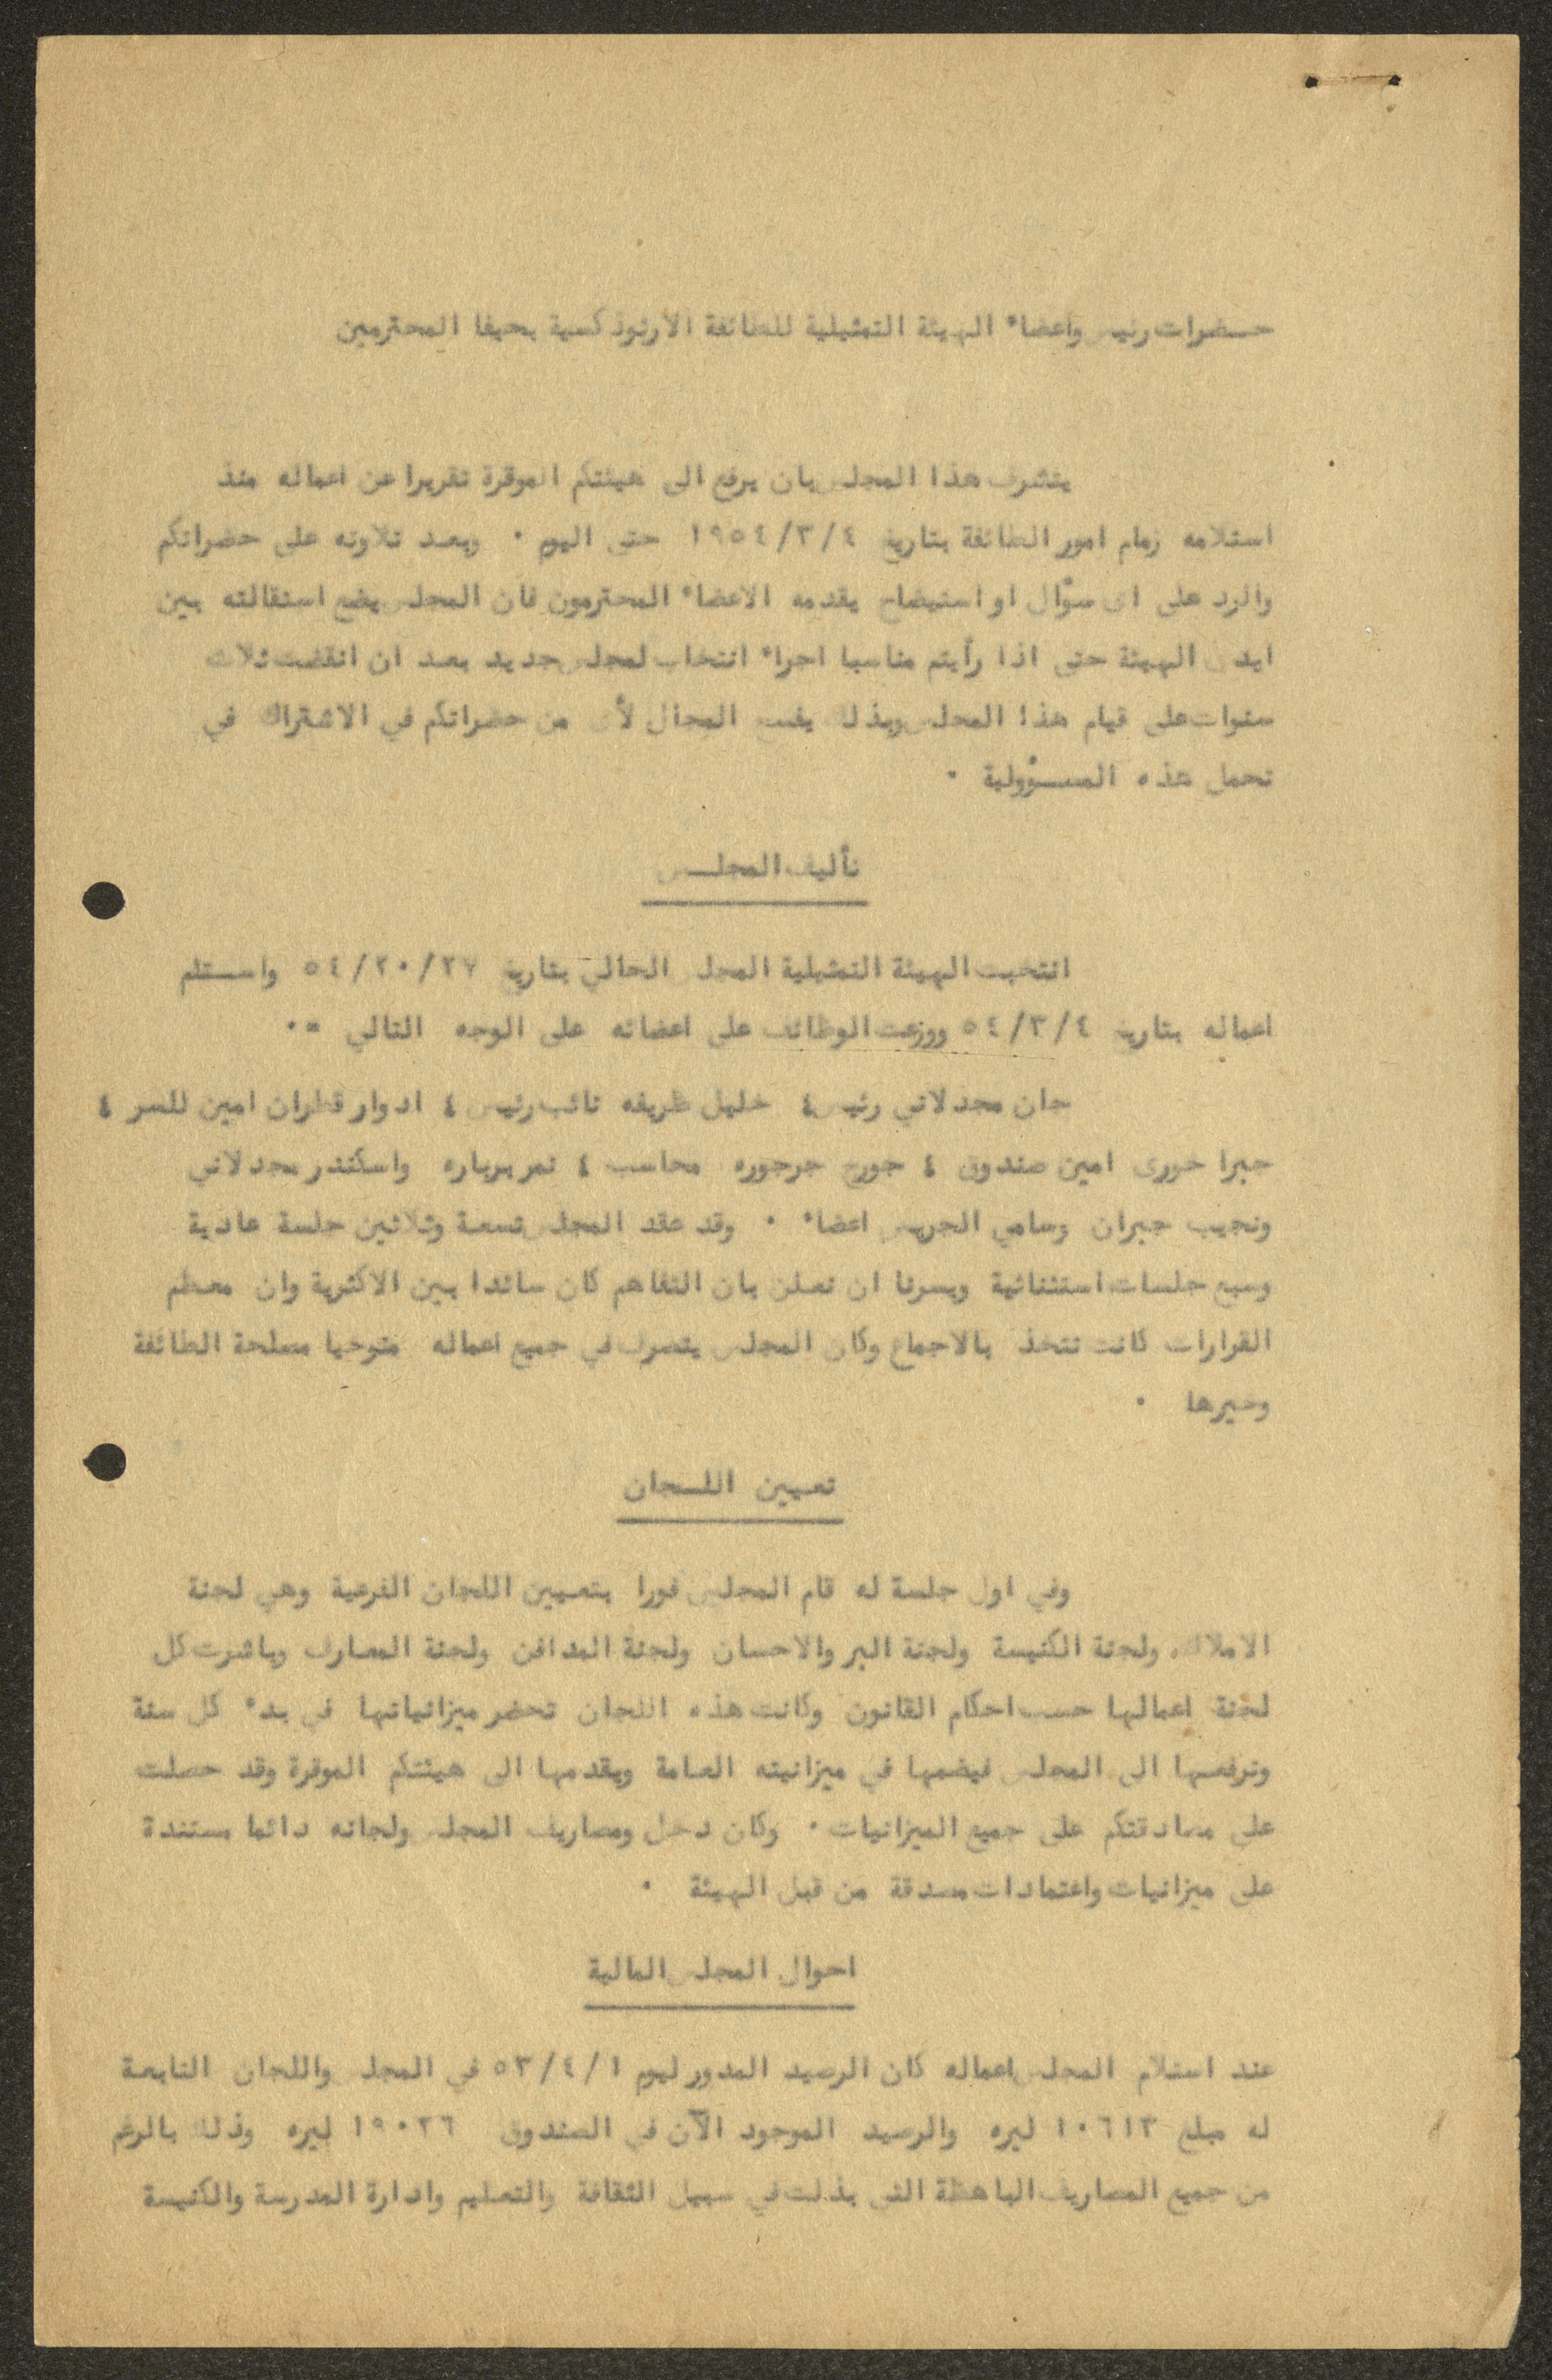 حضرات رئيس واعضاء الهيئة التمثيلية للطائفة الارثوذكسية بحيفا المحترمين
يتشرف هذا المجلس بان يرفع الى هيئتكم الموقرة تقريرا عن اعماله منذ
استلامه زمام امور الطائفة بتاريخ ١٩٥٤/٣/٤ حتى اليوم ٠ وبعد تلاوته على حضراتكم
والرد على اى سؤال او استيضاح يقدمه الاعضاء المحترمون فان المجلس يضع استقالته بين
ايدى الهيئة حتى اذا رأيتم مناسبا اجراء انتخاب لمجلس جديد بعد ان انقضت ثلاث
سنوات على قيام هذا المجلس وبذلك يفسح المجال لأى من حضراتكم في الاشتراك في
تحمل هذه المسؤولية ٠
تأليف المجلس
انتخبت الهيئة التمثيلية المجلس الحالي بتاريخ ٥٤/٢٠/٢٧ واستلم
اعماله بتاريخ ٥٤/٣/٤ ووزعت الوظائف على اعضائه على الوجه التالي =٠
جان مجدلاني رئيس ٤ خليل ظريفه نائب رئيس ٤ ادوار قطران امين للسر ٤
جبرا خورى امين صندوق ٤ جورج جرجوره محاسب ٤ نمر بربارة واسكندر مجدلاني
ونجيب جبران وسامي الجريس اعضاء ٠ وقد عقد المجلس تسعة وثلاثين جلسة عادية
وسبع جلسات استثنائية ويسرنا ان نعلن بان التفاهم كان سائدا بين الاكثرية وان معظم
القرارات كانت تتخذ بالاجماع وكان المجلس يتصرف في جميع اعماله متوخيا مصلحة الطائفة
وخيرها ٠
تعيين اللجان
وفي اول جلسة له قام المجلس فورا بتعيين اللجان الفرعية وهي لجنة
الاملاك ولجنة الكنيسة ولجنة البر والاحسان ولجنة المدافن ولجنة المعارف وباشرت كل
لجنة اعمالها حسب احكام القانون وكانت هذه اللجان تحضر ميزانياتها في بدء كل سنة
وترفعها الى المجلس فيضمها في ميزانيته العامة ويقدمها الى هيئتكم الموقرة وقد حصلت
على مصادقتكم على جميع الميزانيات ٠ وكان دخل ومصاريف المجلس ولجانه دائما مستندة
على ميزانيات واعتمادات مصدقة من قبل الهيئة ٠
احوال المجلس المالية
عند استلام المجلس اعماله كان الرصيد المدور ليوم ٥٣/٤/١ في المجلس واللجان التابعة
له مبلغ ١٠٦١٣ ليره والرصيد الموجود الآن في الصندوق ١٩٠٢٦ ليره وذلك بالرغم
من جميع المصاريف الباهظة التى بذلت في سبيل الثقافة والتعليم وادارة المدرسة والكنيسة